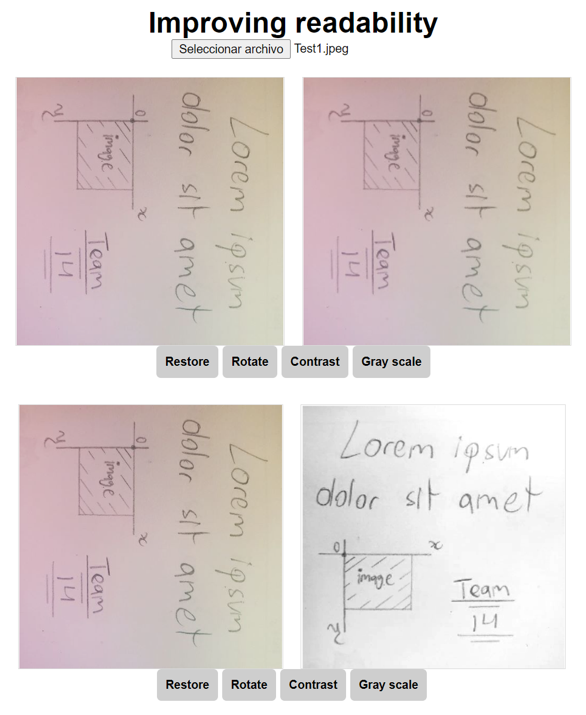 Improving readability
Seleccionar archivo Test1.jpeg
Lorem ipsum
dolor sit amet
0 x
image
y
Team
14
Lorem ipsum
dolor sit amet
0 x
image
y
Team
14
Restore Rotate Contrast Gray scale
Lorem ipsum
dolor sit amet
0 x
image
y
Team
14
Lorem ipsum
dolor sit amet
0 x
image
y
Team
14
Restore Rotate Contrast Gray scale